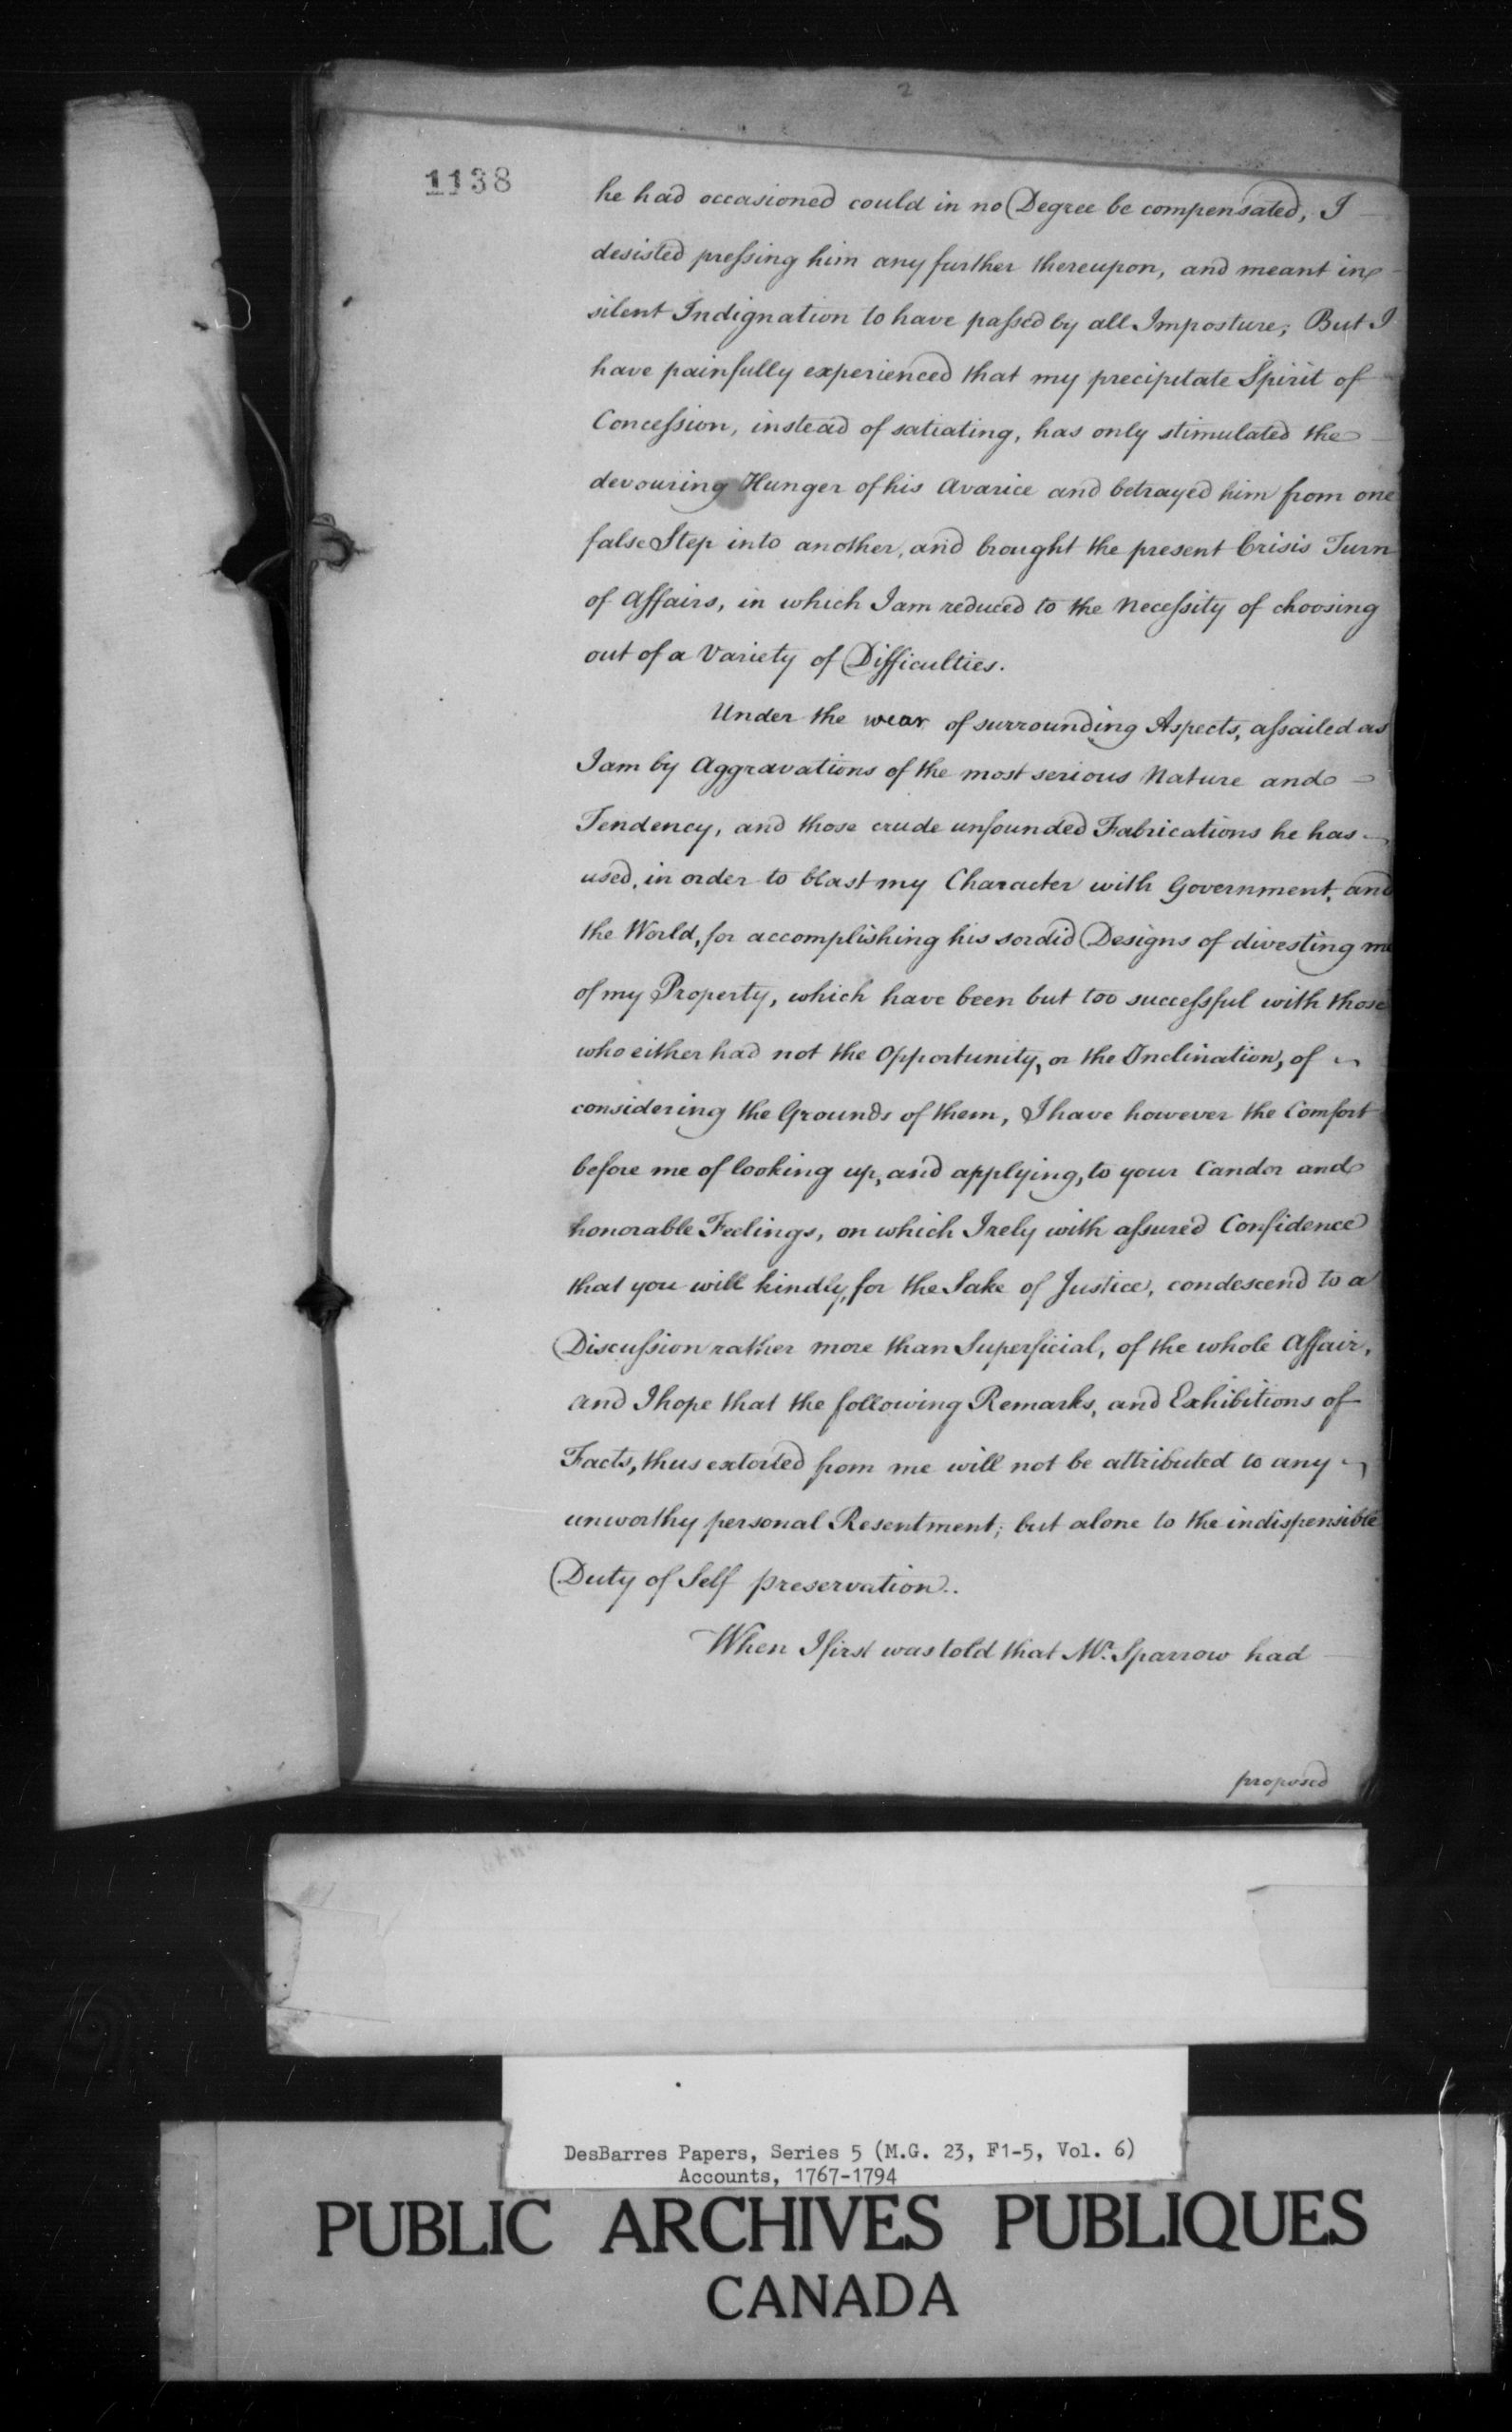 2
1138
he had occasioned could in no Degree be compensated, I
desisted preſsing him any further thereupon, and meant in
silent Indignation to have paſsed by all Imposture; But I
have painfully experienced that my precipitate Spirit of
Conceſsion, instead of satiating, has only stimulated the
devouring Hunger of his Avarice and betrayed him from one
false Step into another, and brought the present Crisis Turn
of Affairs, in which I am reduced to the Neceſsity of choosing
out of a Variety of Difficulties.
Under the wear of surrounding Aspects, aſsailed as
I am by Aggravations of the most serious Nature and
Tendency, and those crude unfounded Fabrications he has
used, in order to blast my Character with Government, and
the World, for accomplishing his sordid Designs of divesting me
of my Property, which have been but too succeſsful with those
who either had not the Opportunity, or the Inclination, of
considering the Grounds of them, I have however the Comfort
before me of looking up, and applying, to your Candor and
honorable Feelings, on which I rely with aſsured Confidence
that you will kindly, for the Sake of Justice, condescend to a
Discuſsion rather more than Superficial, of the whole Affair,
and I hope that the following Remarks, and Exhibitions of
Facts, thus extorted from me will not be attributed to any
unworthy personal Resentment; but alone to the indispensible
Duty of Self preservation..
When I first was told that Mr. Sparrow had
proposed
DesBarres Papers, Series 5 (M.G. 23, F1-5, Vol. 6)
Accounts, 1767-1794
PUBLIC ARCHIVES PUBLIQUES
CANADA